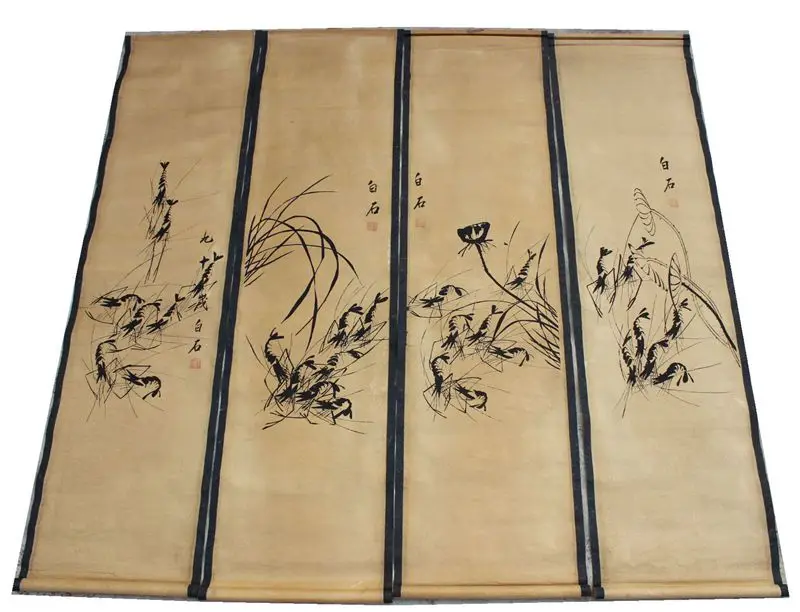 九十歲白石
白石
白石
白石